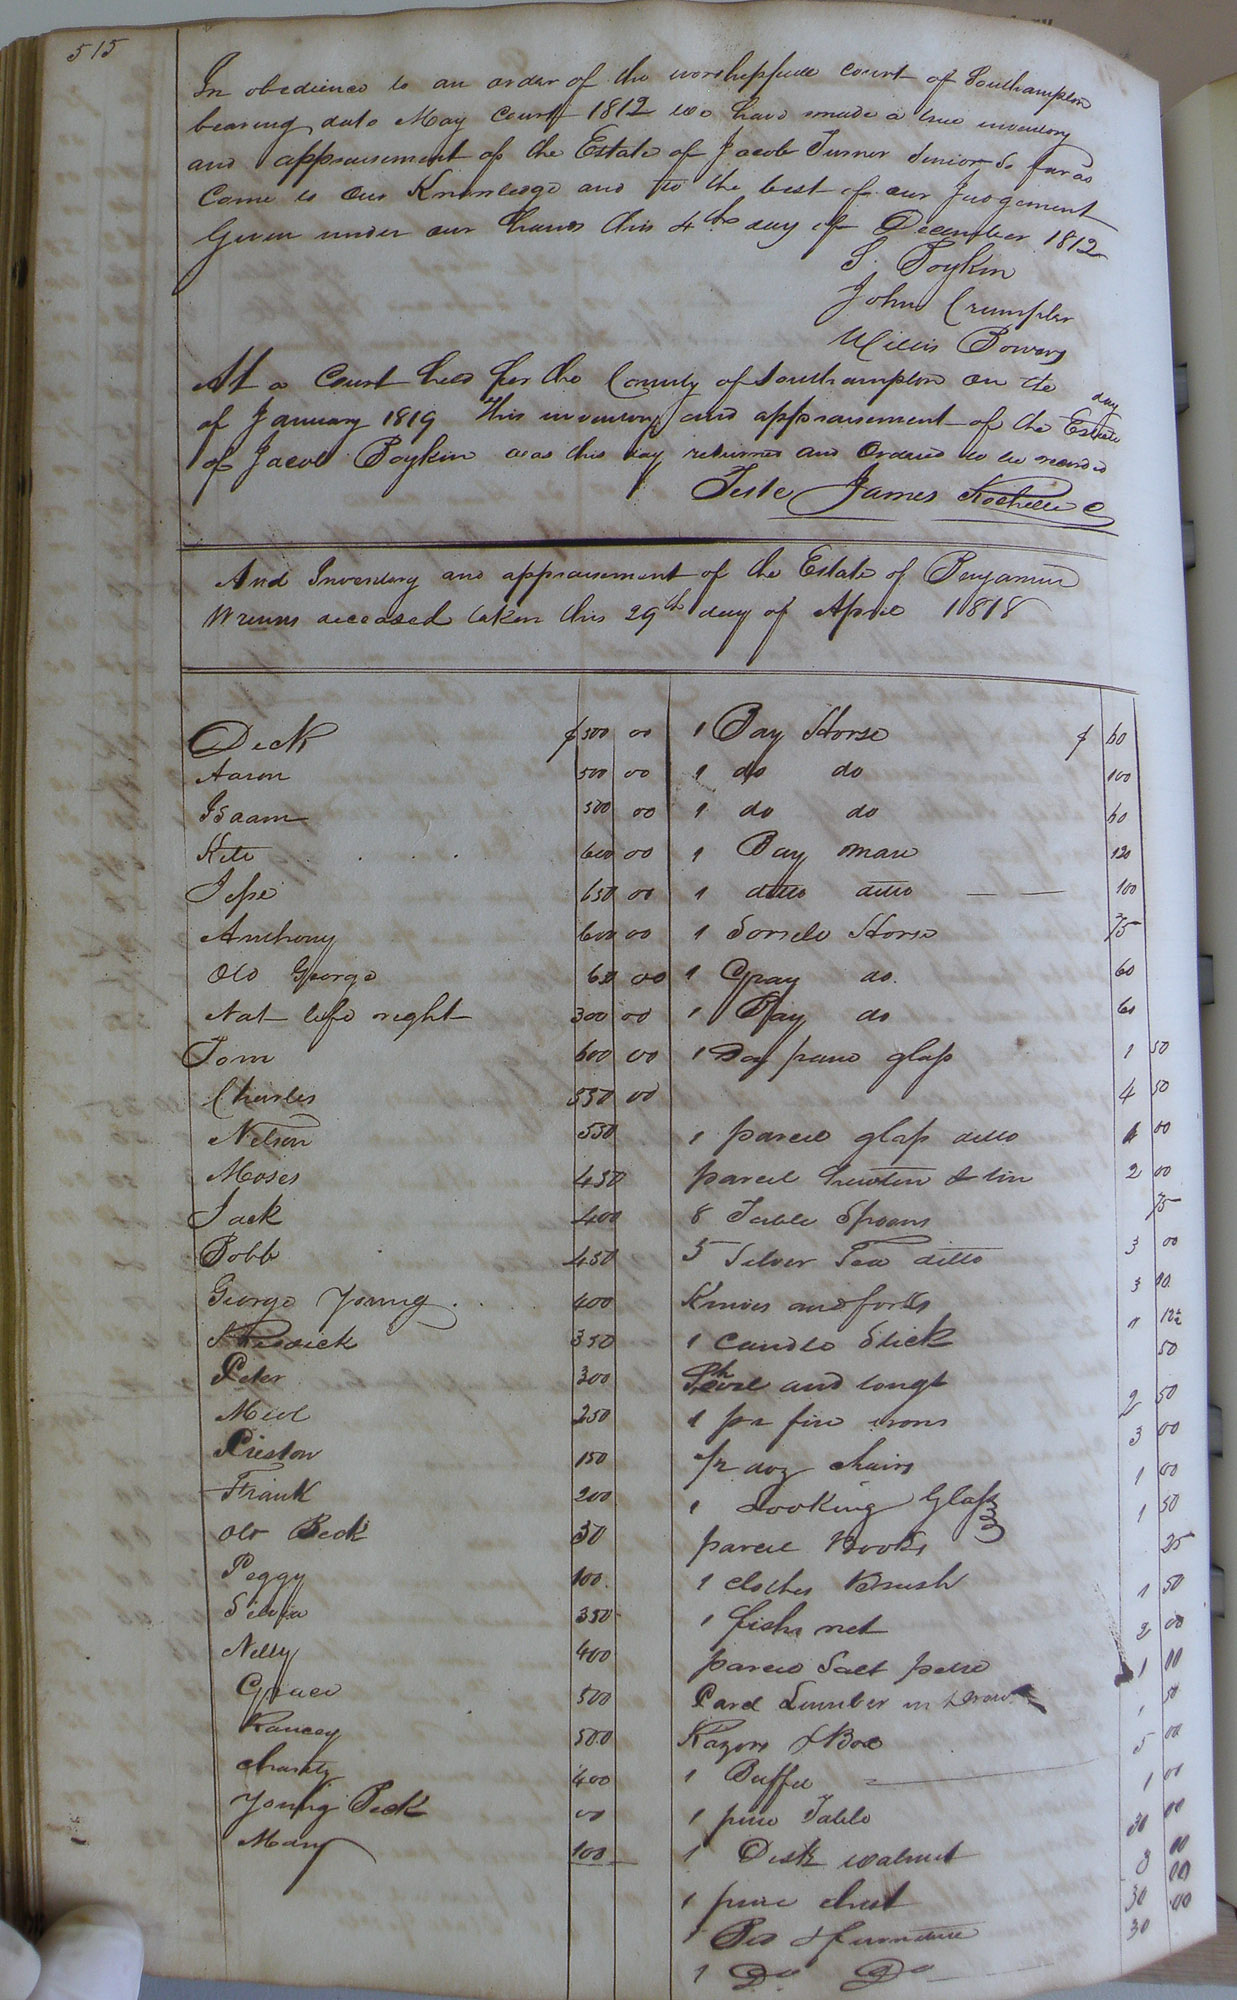 515
In obedience to an order of the worshipfull court of Southampton
bearing date May Court 1812 we have made a true inventory
and appraisement of the Estate of Jacob Turner Senior So far as
Come to Our Knowledge and to the best of our Judgement
Given under our hands this 4th day of December 1812
S. Boykin
John Crumpler
Willis Bowers
At a Court held for the County of Southampton on the day
of January 1819 This inventory and appraisement of the Estate
of Jacob Boykin was this day returned and Ordered to be recorded
Teste James Rochelle C
And Inventory and appraisement of the Estate of Benjamin
Wrenns deceased taken this 29th day of April 1818
Dick $ 500 00 1 Bay Horse $ 60
Aaron 500 00 1 do do 100
Isaam 500 00 1 do do 60
Kitt 600 00 1 Bay mare 120
Jesse 650 00 1 ditto ditto 100
Anthony 600 00 1 Sorrele Horse 75
Old George 60 00 1 Gray do. 60
Nat life right 300 00 1 Bay do 60
Tom 600 00 1 glass 1 50
Charles 550 00 4 50
Nelson 550 1 parcel glass ditto 00
Moses 450 parcel & tin 2 00
Jack 400 8 Table Spoons 75
Bobb 450 5 Silver Tea ditto 3 00
George Young 400 Knives and forks 3 10
350 1 Candle Stick 12½
Peter 300 and tongs 50
250 1 pr fire irons 2 50
Preston 150 ½ doz chairs 3 00
Frank 200 1 Looking Glass 1 00
Old Beck 30 parcel Books 1 50
Peggy 100 1 clothes Brush 25
Silvia 350 1 fish net 1 50
Nelly 400 parcel Salt petre 2 00
Grace 500 Parcl Lumber in Draw 1 00
500 Razors & Box 50
Charity 400 1 Buffet 5 00
Young Beck 00 1 pine Table 1 00
Mary 100 1 Desk walnut 30 00
1 pine chest 3 00
1 Bed & furniture 30 00
1 Do Do 30 00